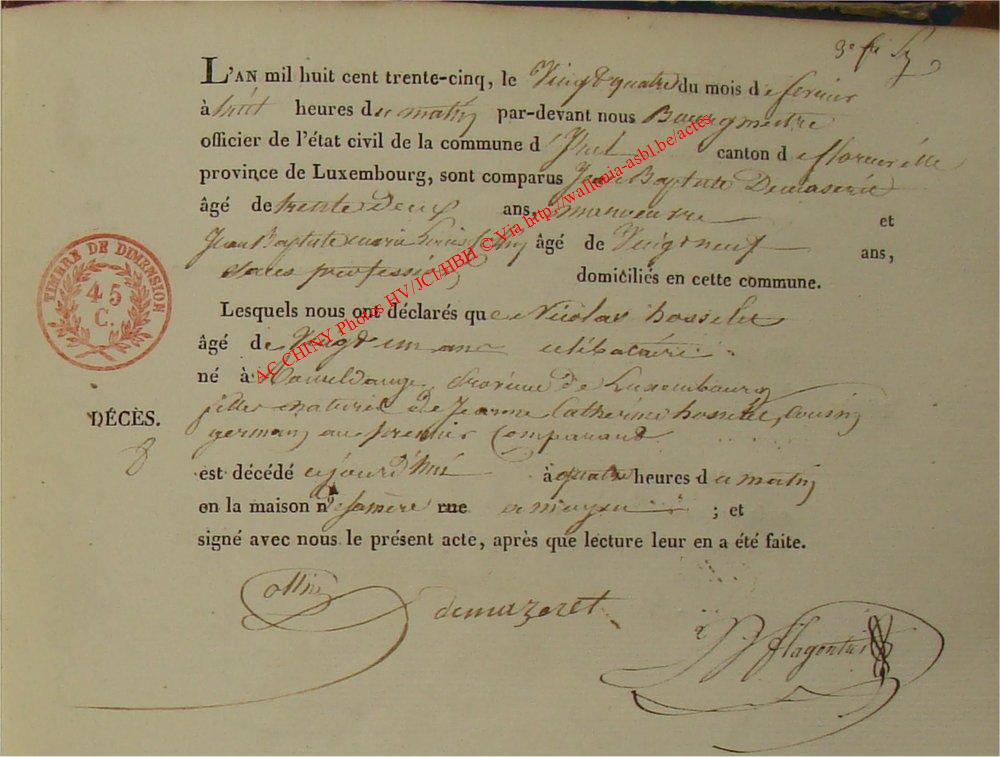 L'AN mil huit cent trente-cinq, le Vingt quatre du mois de fevrier
à huit heures du matin par-devant nous Bourgmestre
officier de l'état civil de la commune d'Izel canton de florenville
province de Luxembourg, sont comparus Jean Baptiste Demaseret
âgé de trente Deux ans, manoeuvre et
Jean Baptiste marie Louis âgé de Vingt neuf ans,
sans profession domiciliés en cette commune.
Lesquels nous ont déclarés que Nicolas hosselet
âgé de Vingt un ans celibataire
né à province de Luxembourg
naturel de Jeanne Catherine hosselet, Cousin
germain au premier Comparant
DÉCÈS.
est décédé aujourd'hui à quatre heures du matin
en la maison n° rue ; et
signé avec nous le présent acte, après que lecture leur en a été faite.
demazeret
TIMBRE DE DIMENSION
45
C.
AC CHINY Photos HV/JCI/HBH © Via http://wallonia-asbl.be/actes